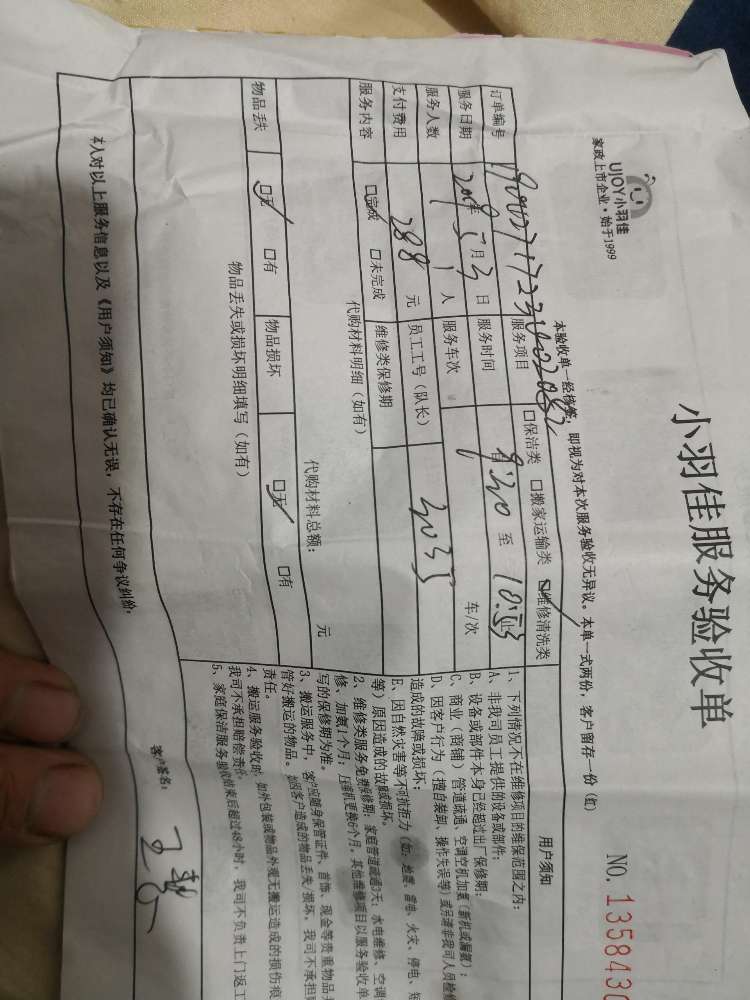 UIJOY小羽佳
家政上市企业·始于1999
小羽佳服务验收单
NO. 1358430
本验收单一经签署，即视为对本次服务验收无异议。本单一式两份，客户留存一份（红）
订单编号
服务项目 □保洁类 □搬家运输类 ☑维修清洗类
服务日期 月 3 日 服务时间 9:30 至 10:55
服务人数 1 人 服务车次 车/次
支付费用 288 元 员工工号（队长） 3035
服务内容 ☑完成 □未完成 维修类保修期
代购材料明细（如有）
代购材料总额： 元
物品丢失 ☑无 □有 物品损坏 ☑无 □有
物品丢失或损坏明细填写（如有）
本人对以上服务信息以及《用户须知》均已确认无误，不存在任何争议纠纷。
客户签名：
用户须知
1、下列情况不在维修项目的维保范围之内：
A、非我司员工提供的设备或部件；
B、设备或部件本身已经超过出厂保修期；
C、商业（商铺）管道疏通、空调空机加氟（新机或漏氟）；
D、因客户行为（擅自装卸、操作失误等）或另请非我司人员检修
造成的故障或损坏；
E、因自然灾害等不可抗拒力（如：地震、雷电、火灾、停电、
等）原因造成的故障或损坏。
2、维修类服务免费保修期：家庭管道疏通3天；水电维修、空调
修、加氟1个月；压缩机更换6个月。其他维修项目以服务验收单
写的保修期为准。
3、搬运服务中，客户应随身保管证件、首饰、现金等贵重物品
管好搬运的物品。如因客户造成的物品丢失/损坏，我司不承担
责任。
4、搬运服务验收时，如外包装或物品外观无搬运造成的损伤痕
我司不承担赔偿责任。
5、家庭保洁服务验收结束后超过48小时，我司不负责上门返工